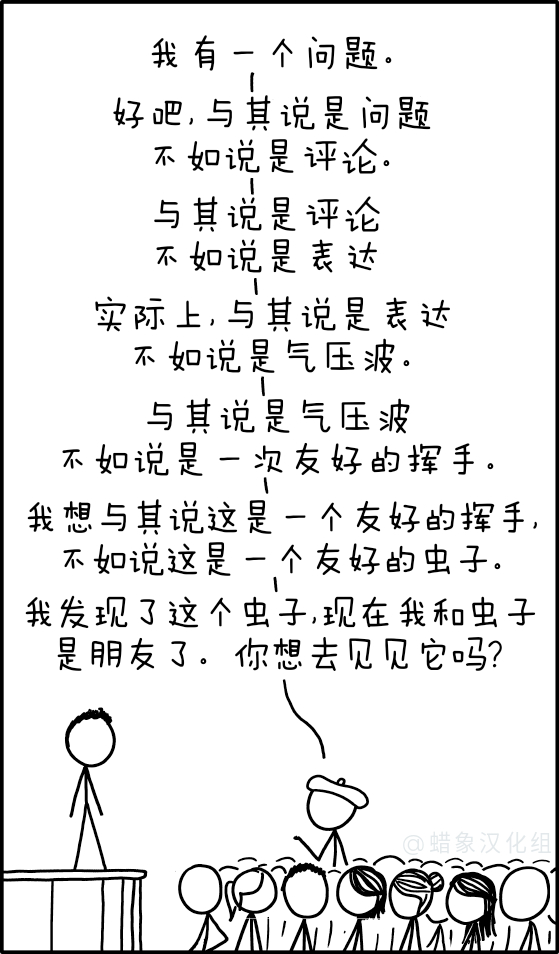 我有一个问题。
好吧,与其说是问题
不如说是评论。
与其说是评论
不如说是表达
实际上,与其说是表达
不如说是气压波。
与其说是气压波
不如说是一次友好的挥手。
我想与其说这是一个友好的挥手,
不如说这是一个友好的虫子。
我发现了这个虫子,现在我和虫子
是朋友了。你想去见见它吗?
@蜡象汉化组